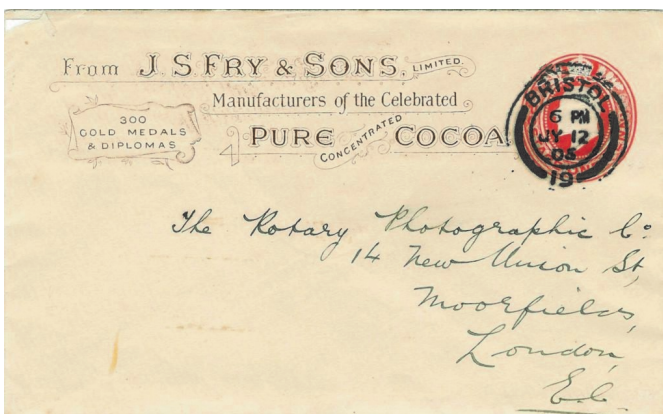 From J. S. FRY & SONS, LIMITED.
Manufacturers of the Celebrated
300
GOLD MEDALS
& DIPLOMAS
PURE CONCENTRATED COCOA
BRISTOL
6 PM
JY 12
05
19
The Rotary Photographic Co
14 New Union St,
Moorfields,
London,
E.C.